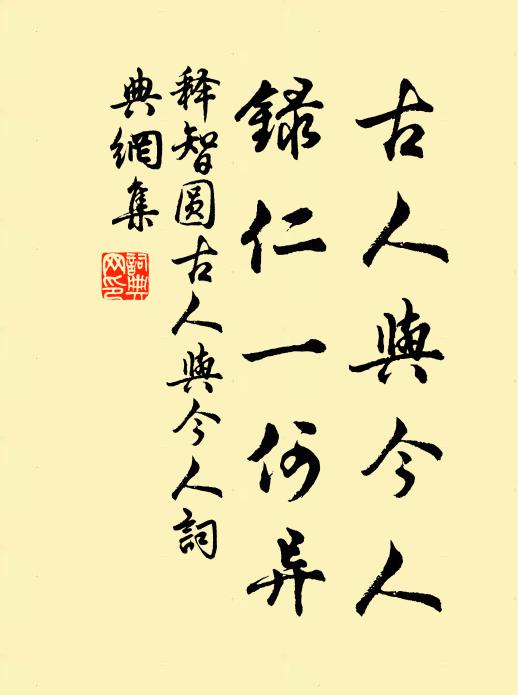 古人與今人
録仁一何异
释智圆古人與今人詞
典網集
詞典
网印